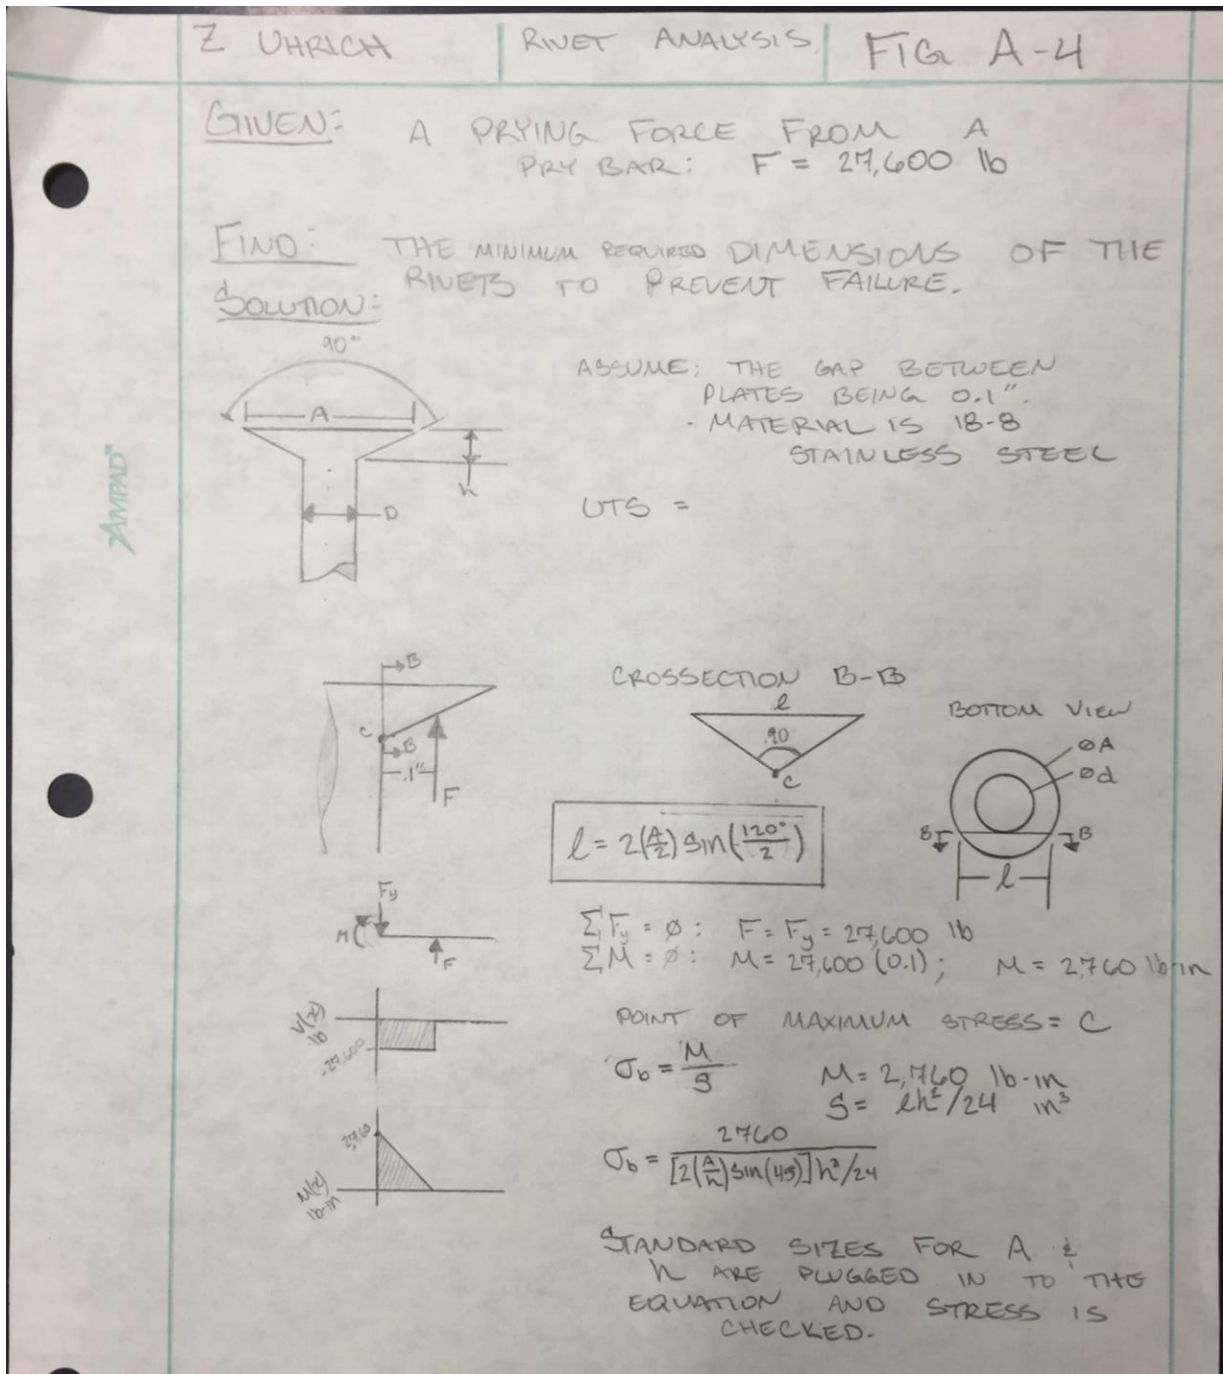 Z UHRICH
RIVET ANALYSIS
FIG A-4
GIVEN: A PRYING FORCE FROM A
PRY BAR: F = 27,600 lb
FIND: THE MINIMUM REQUIRED DIMENSIONS OF THE
RIVETS TO PREVENT FAILURE.
SOLUTION:
90°
A
h
D
ASSUME: THE GAP BETWEEN
PLATES BEING 0.1".
- MATERIAL IS 18-8
STAINLESS STEEL
UTS =
AMPAD
B
C
B
.1"
F
CROSSECTION B-B
l
90
C
BOTTOM VIEW
ØA
Ød
B
B
l
l = 2(A/2) sin(120°/2)
Fy
M
F
ΣFy = ø: F = Fy = 27,600 lb
ΣM = ø: M = 27,600 (0.1); M = 2,760 lb-in
V(x)
lb
-27,600
POINT OF MAXIMUM STRESS = C
σb = M/S
M = 2,760 lb-in
S = lh²/24 in³
2,760
M(x)
lb-in
σb = 2760/[2(A/h)sin(45)]h²/24
STANDARD SIZES FOR A &
h ARE PLUGGED IN TO THE
EQUATION AND STRESS IS
CHECKED.